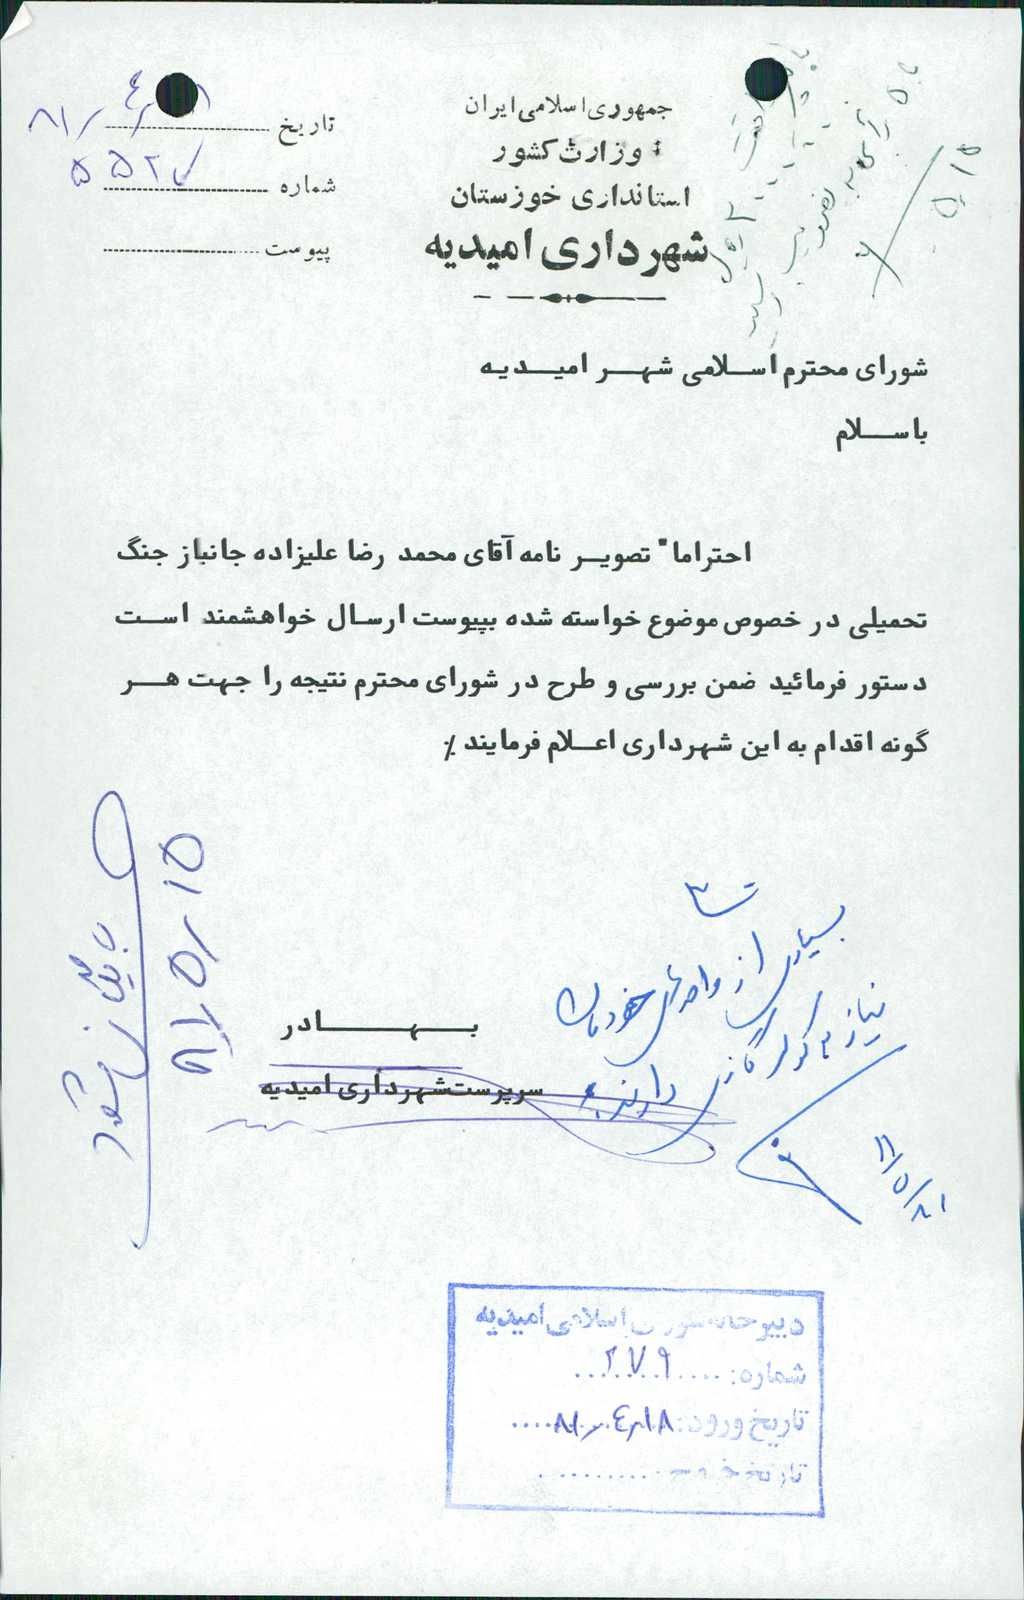 جمهوری اسلامی ایران
وزارت کشور
استانداری خوزستان
شهرداری امیدیه
تاریخ ۸۱/۴/
شماره ۵۵۲۷
پیوست
۵/۱۵
شورای محترم اسلامی شهر امیدیه
باسلام
احتراما" تصویر نامه آقای محمد رضا علیزاده جانباز جنگ
تحمیلی در خصوص موضوع خواسته شده بپیوست ارسال خواهشمند است
دستور فرمائید ضمن بررسی و طرح در شورای محترم نتیجه را جهت هر
گونه اقدام به این شهرداری اعلام فرمایند ./
بسیاری از واحدهای خودمان
نیاز به کولر گازی دارند
۸۱/۵/۱۱
بهادر
سرپرست شهرداری امیدیه
بایگانی شود
۸۱/۵/۱۵
دبیرخانه شورای اسلامی امیدیه
شماره: ۲۷۹
تاریخ ورود: ۸۱/۴/۱۸
تاریخ خروج